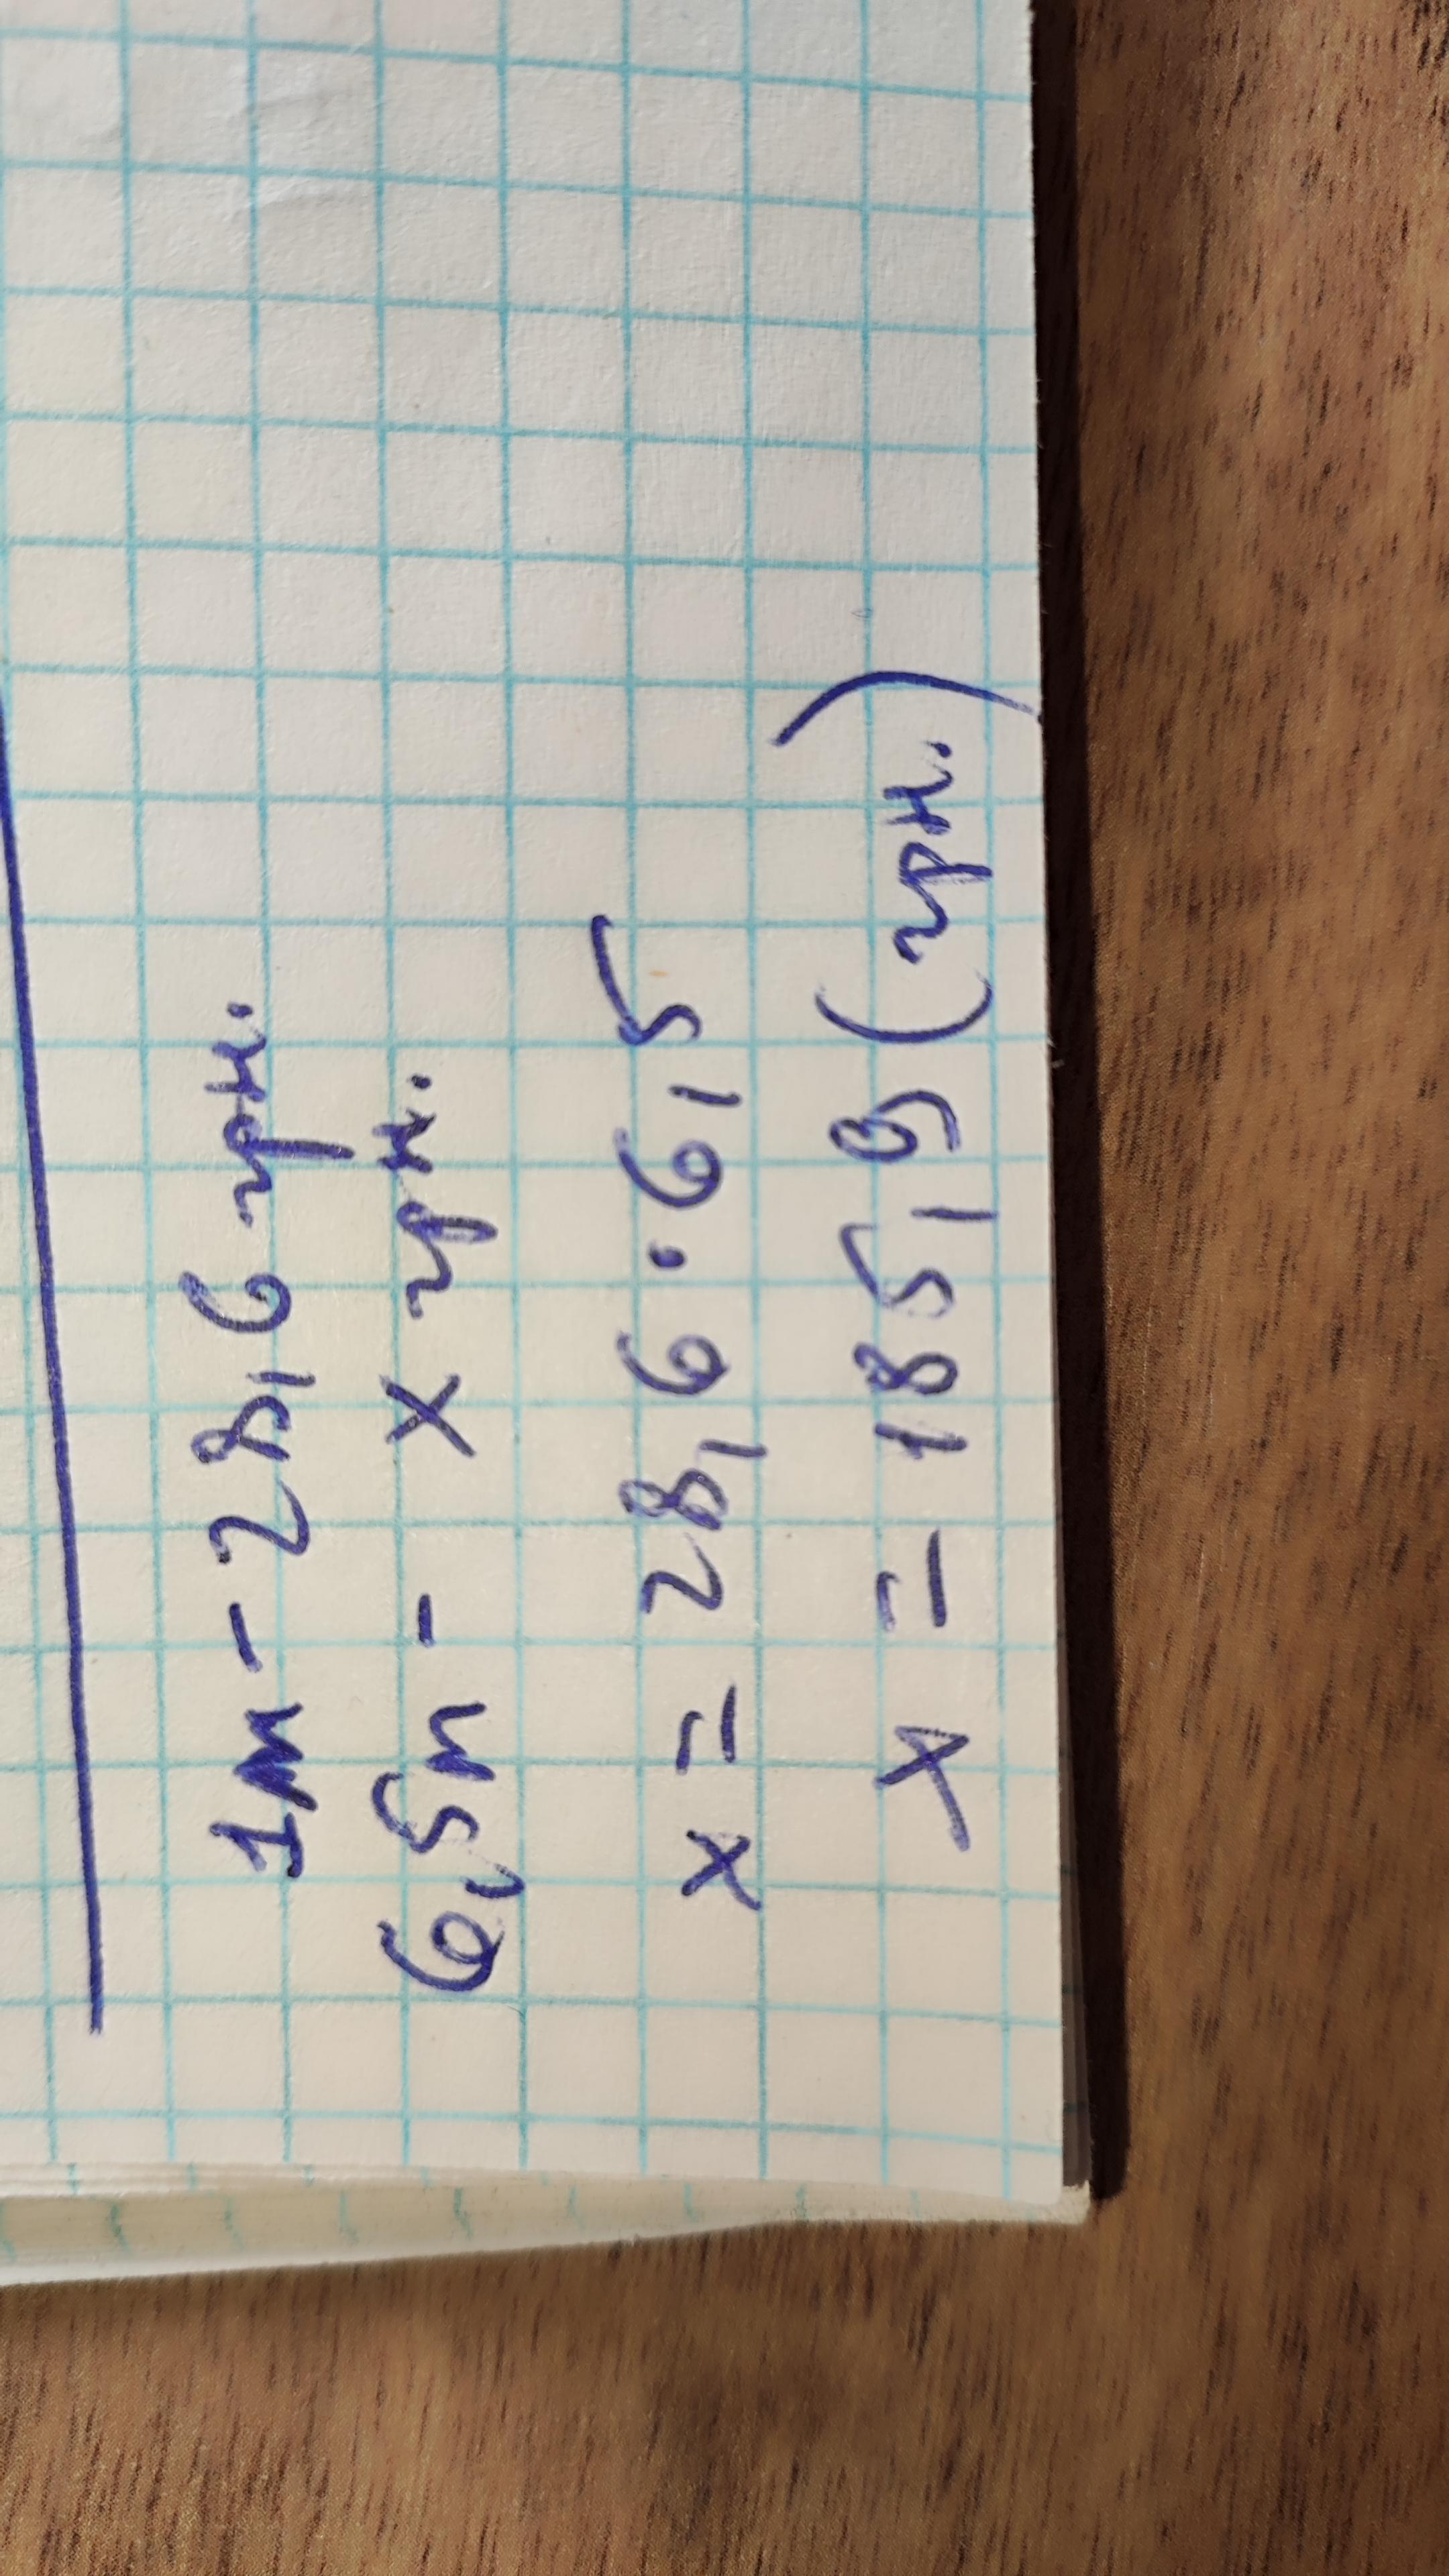 1м - 28,6 грн.
6,5 м - х грн.
х = 28,6 · 6,5
х = 185,9 (грн.)